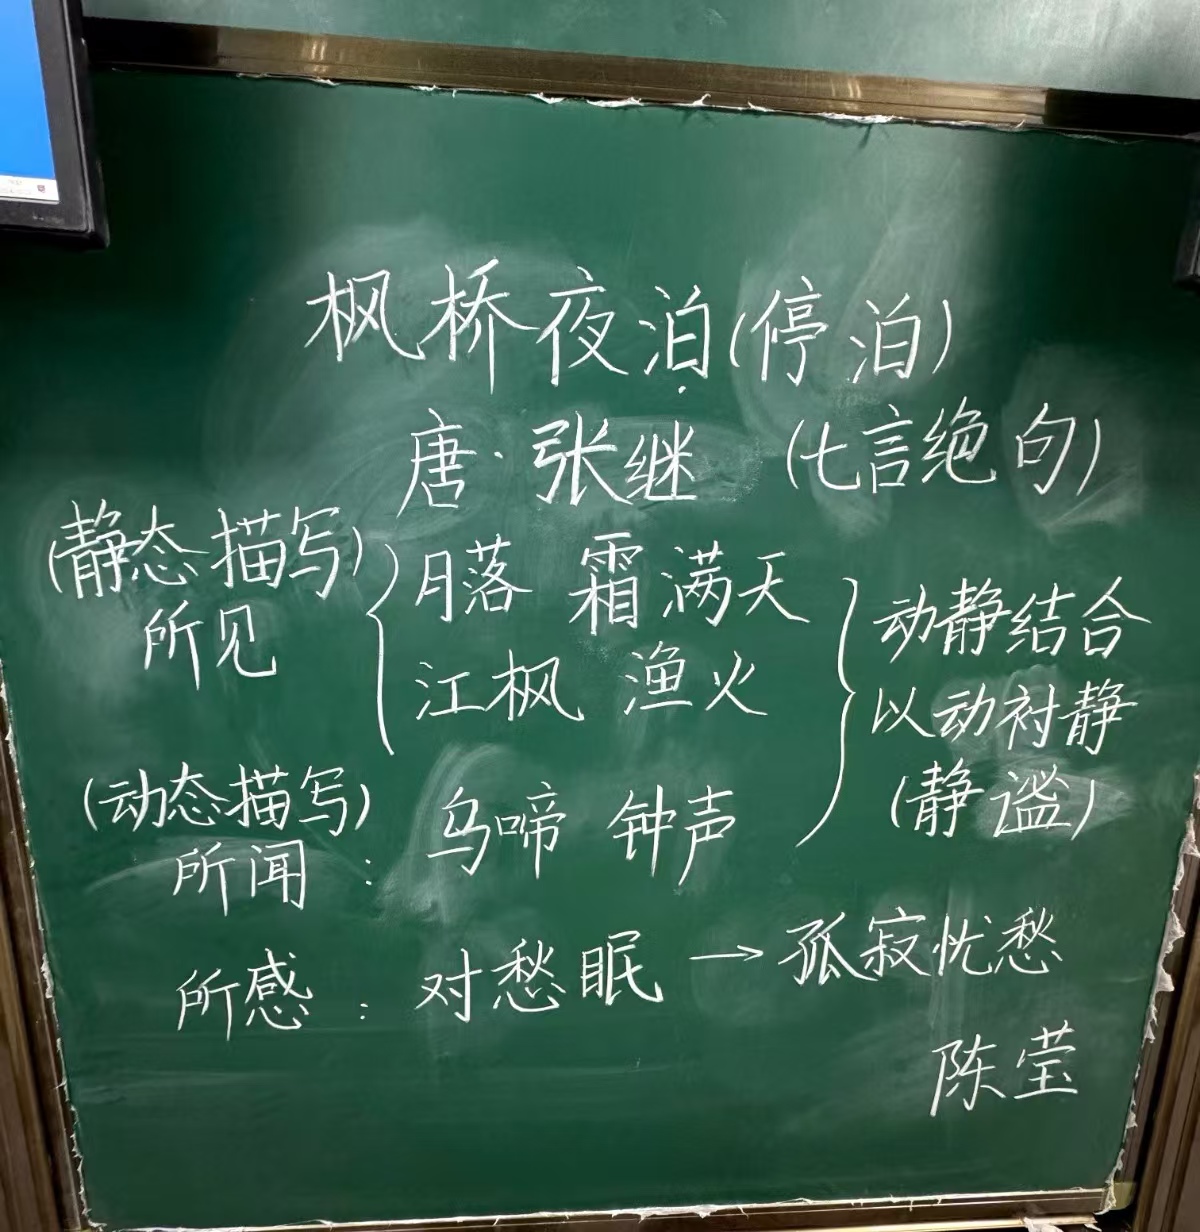 枫桥夜泊(停泊)
唐·张继 (七言绝句)
(静态描写)
所见
月落 霜满天
江枫 渔火
动静结合
以动衬静
(静谧)
(动态描写)
所闻：乌啼 钟声
所感：对愁眠→孤寂忧愁
陈莹